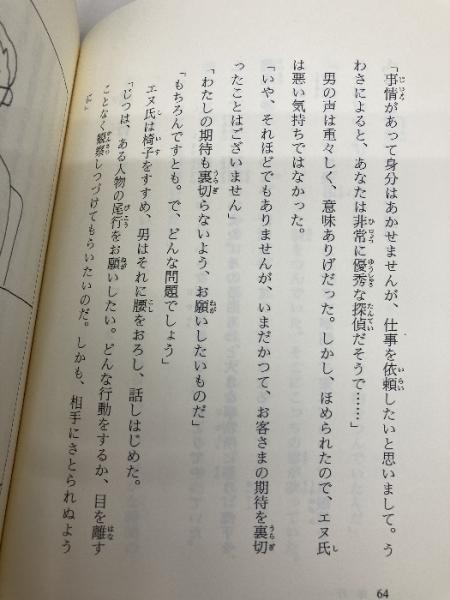 「事情があって身分はあかせませんが、仕事を依頼したいと思いまして。う
わさによると、あなたは非常に優秀な探偵だそうで……」
男の声は重々しく、意味ありげだった。しかし、ほめられたので、エヌ氏
は悪い気持ちではなかった。
「いや、それほどでもありませんが、いまだかつて、お客さまの期待を裏切
ったことはございません」
「わたしの期待も裏切らないよう、お願いしたいものだ」
「もちろんですとも。で、どんな問題でしょう」
エヌ氏は椅子をすすめ、男はそれに腰をおろし、話しはじめた。
「じつは、ある人物の尾行をお願いしたい。どんな行動をするか、目を離す
ことなく観察しつづけてもらいたいのだ。しかも、相手にさとられぬよう
に」
64